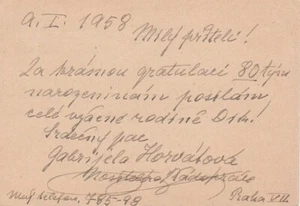 9. I. 1958
Milý příteli!
Za krásnou gratulaci 80tým
narozeninám posílám
celé vzácné rodině Dík!
Srdečný pac
Gabrijela Horvátová
Můj telefon. 785-98 Praha VII.